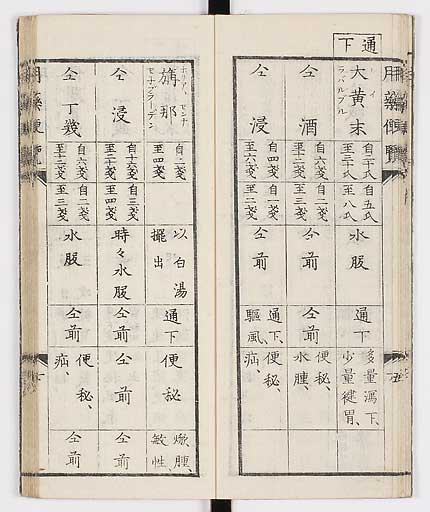 通下
用藥便覽
大黄末
ラバルブル
自二十氏
至三十氏
自五氏
至八氏
水服
通下
多量瀉下、
少量健胃、
仝酒
自六戔
至十二戔
自二戔
至三戔
仝前
仝前
便秘、
水腫、
仝浸
自四戔
至六戔
自一戔
至二戔
仝前
通下、
驅風、
便秘
疝、
五
旃那
ホリア、センナ
セナブラーデン
自二戔
至四戔
以白湯
擺出
通下
便秘
焮腫、
敏性、
仝浸
自十六戔
至二十戔
自三戔
至四戔
時々水服
仝前
仝前
仝前
仝丁幾
自六戔
至十二戔
自二戔
至三戔
水服
仝前
便秘、
疝、
仝前
用藥便覽